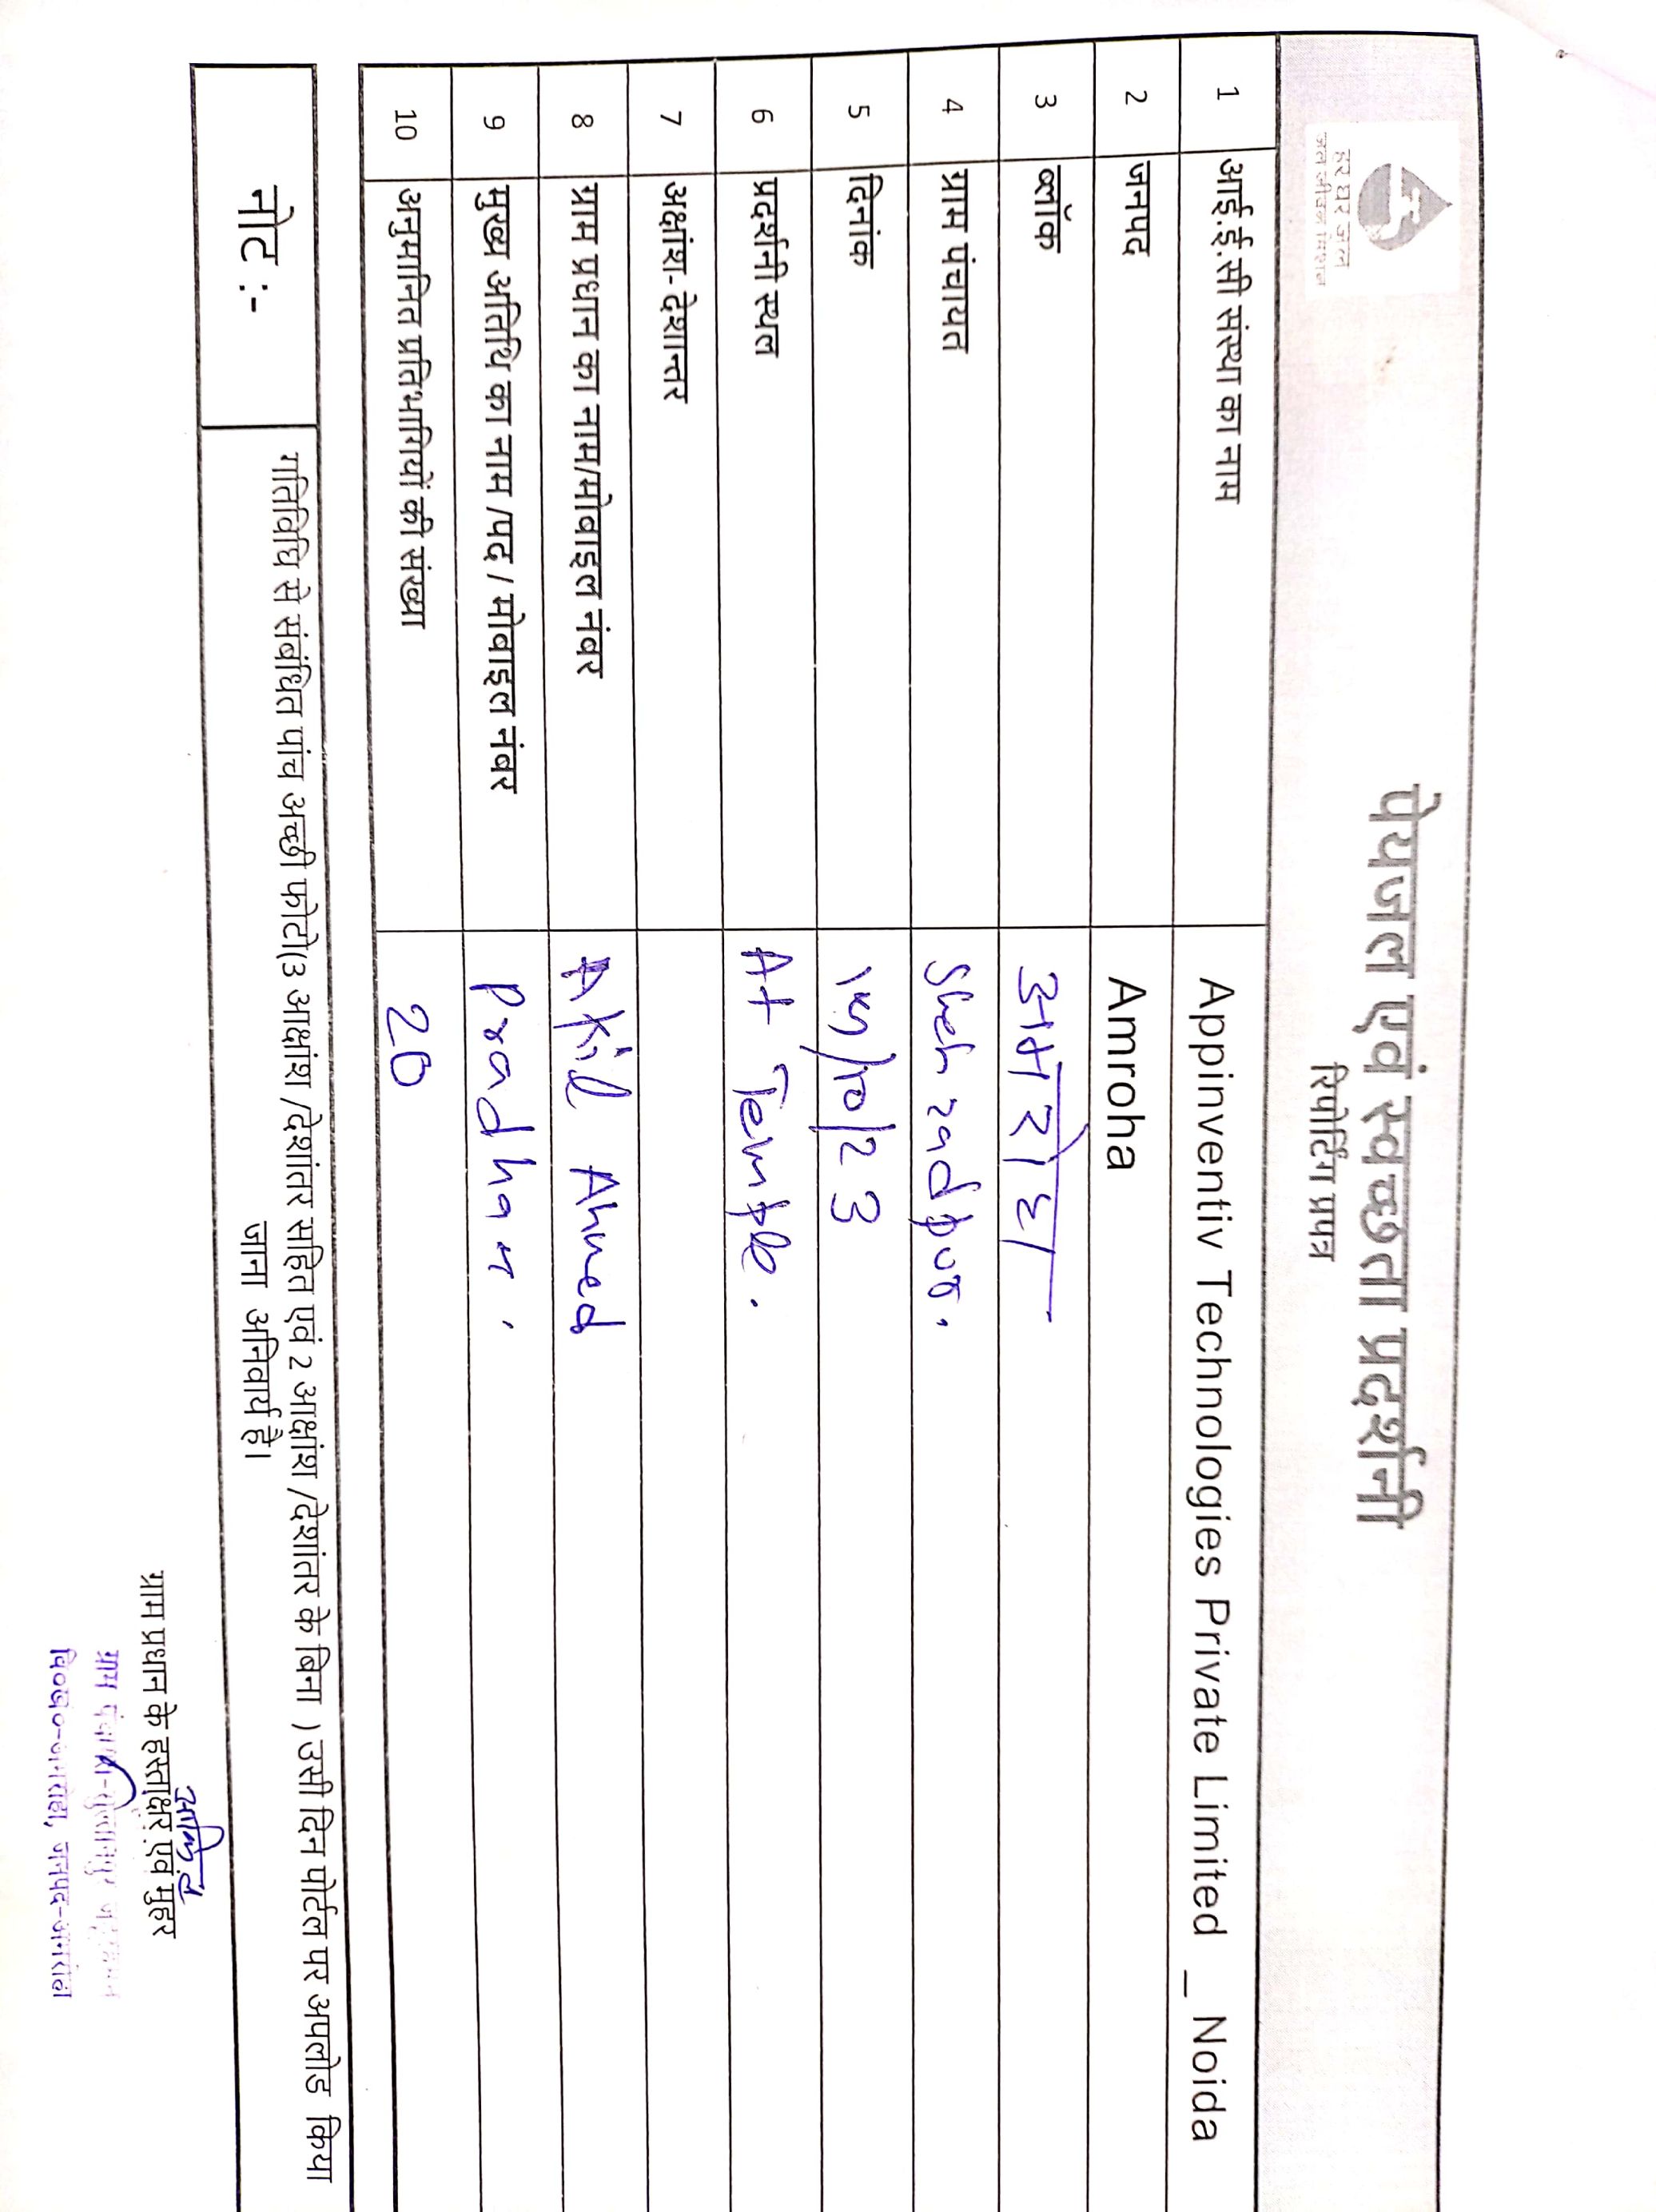 हर घर जल
जल जीवन मिशन
पेयजल एवं स्वच्छता प्रदर्शनी
रिपोर्टिंग प्रपत्र
1 आई.ई.सी संस्था का नाम Appinventiv Technologies Private Limited _ Noida
2 जनपद Amroha
3 ब्लॉक अमरोहा
4 ग्राम पंचायत
5 दिनांक /10/23
6 प्रदर्शनी स्थल At Temple.
7 अक्षांश- देशान्तर
8 ग्राम प्रधान का नाम/मोबाइल नंबर Akil Ahmed
9 मुख्य अतिथि का नाम /पद / मोबाइल नंबर Pradhan.
10 अनुमानित प्रतिभागियों की संख्या 20
नोट :- गतिविधि से संबंधित पांच अच्छी फोटो(3 आक्षांश /देशांतर सहित एवं 2 आक्षांश /देशांतर के बिना ) उसी दिन पोर्टल पर अपलोड किया
जाना अनिवार्य है।
ग्राम प्रधान के हस्ताक्षर एवं मुहर
वि०ख०-अमरोहा, जनपद-अमरोहा